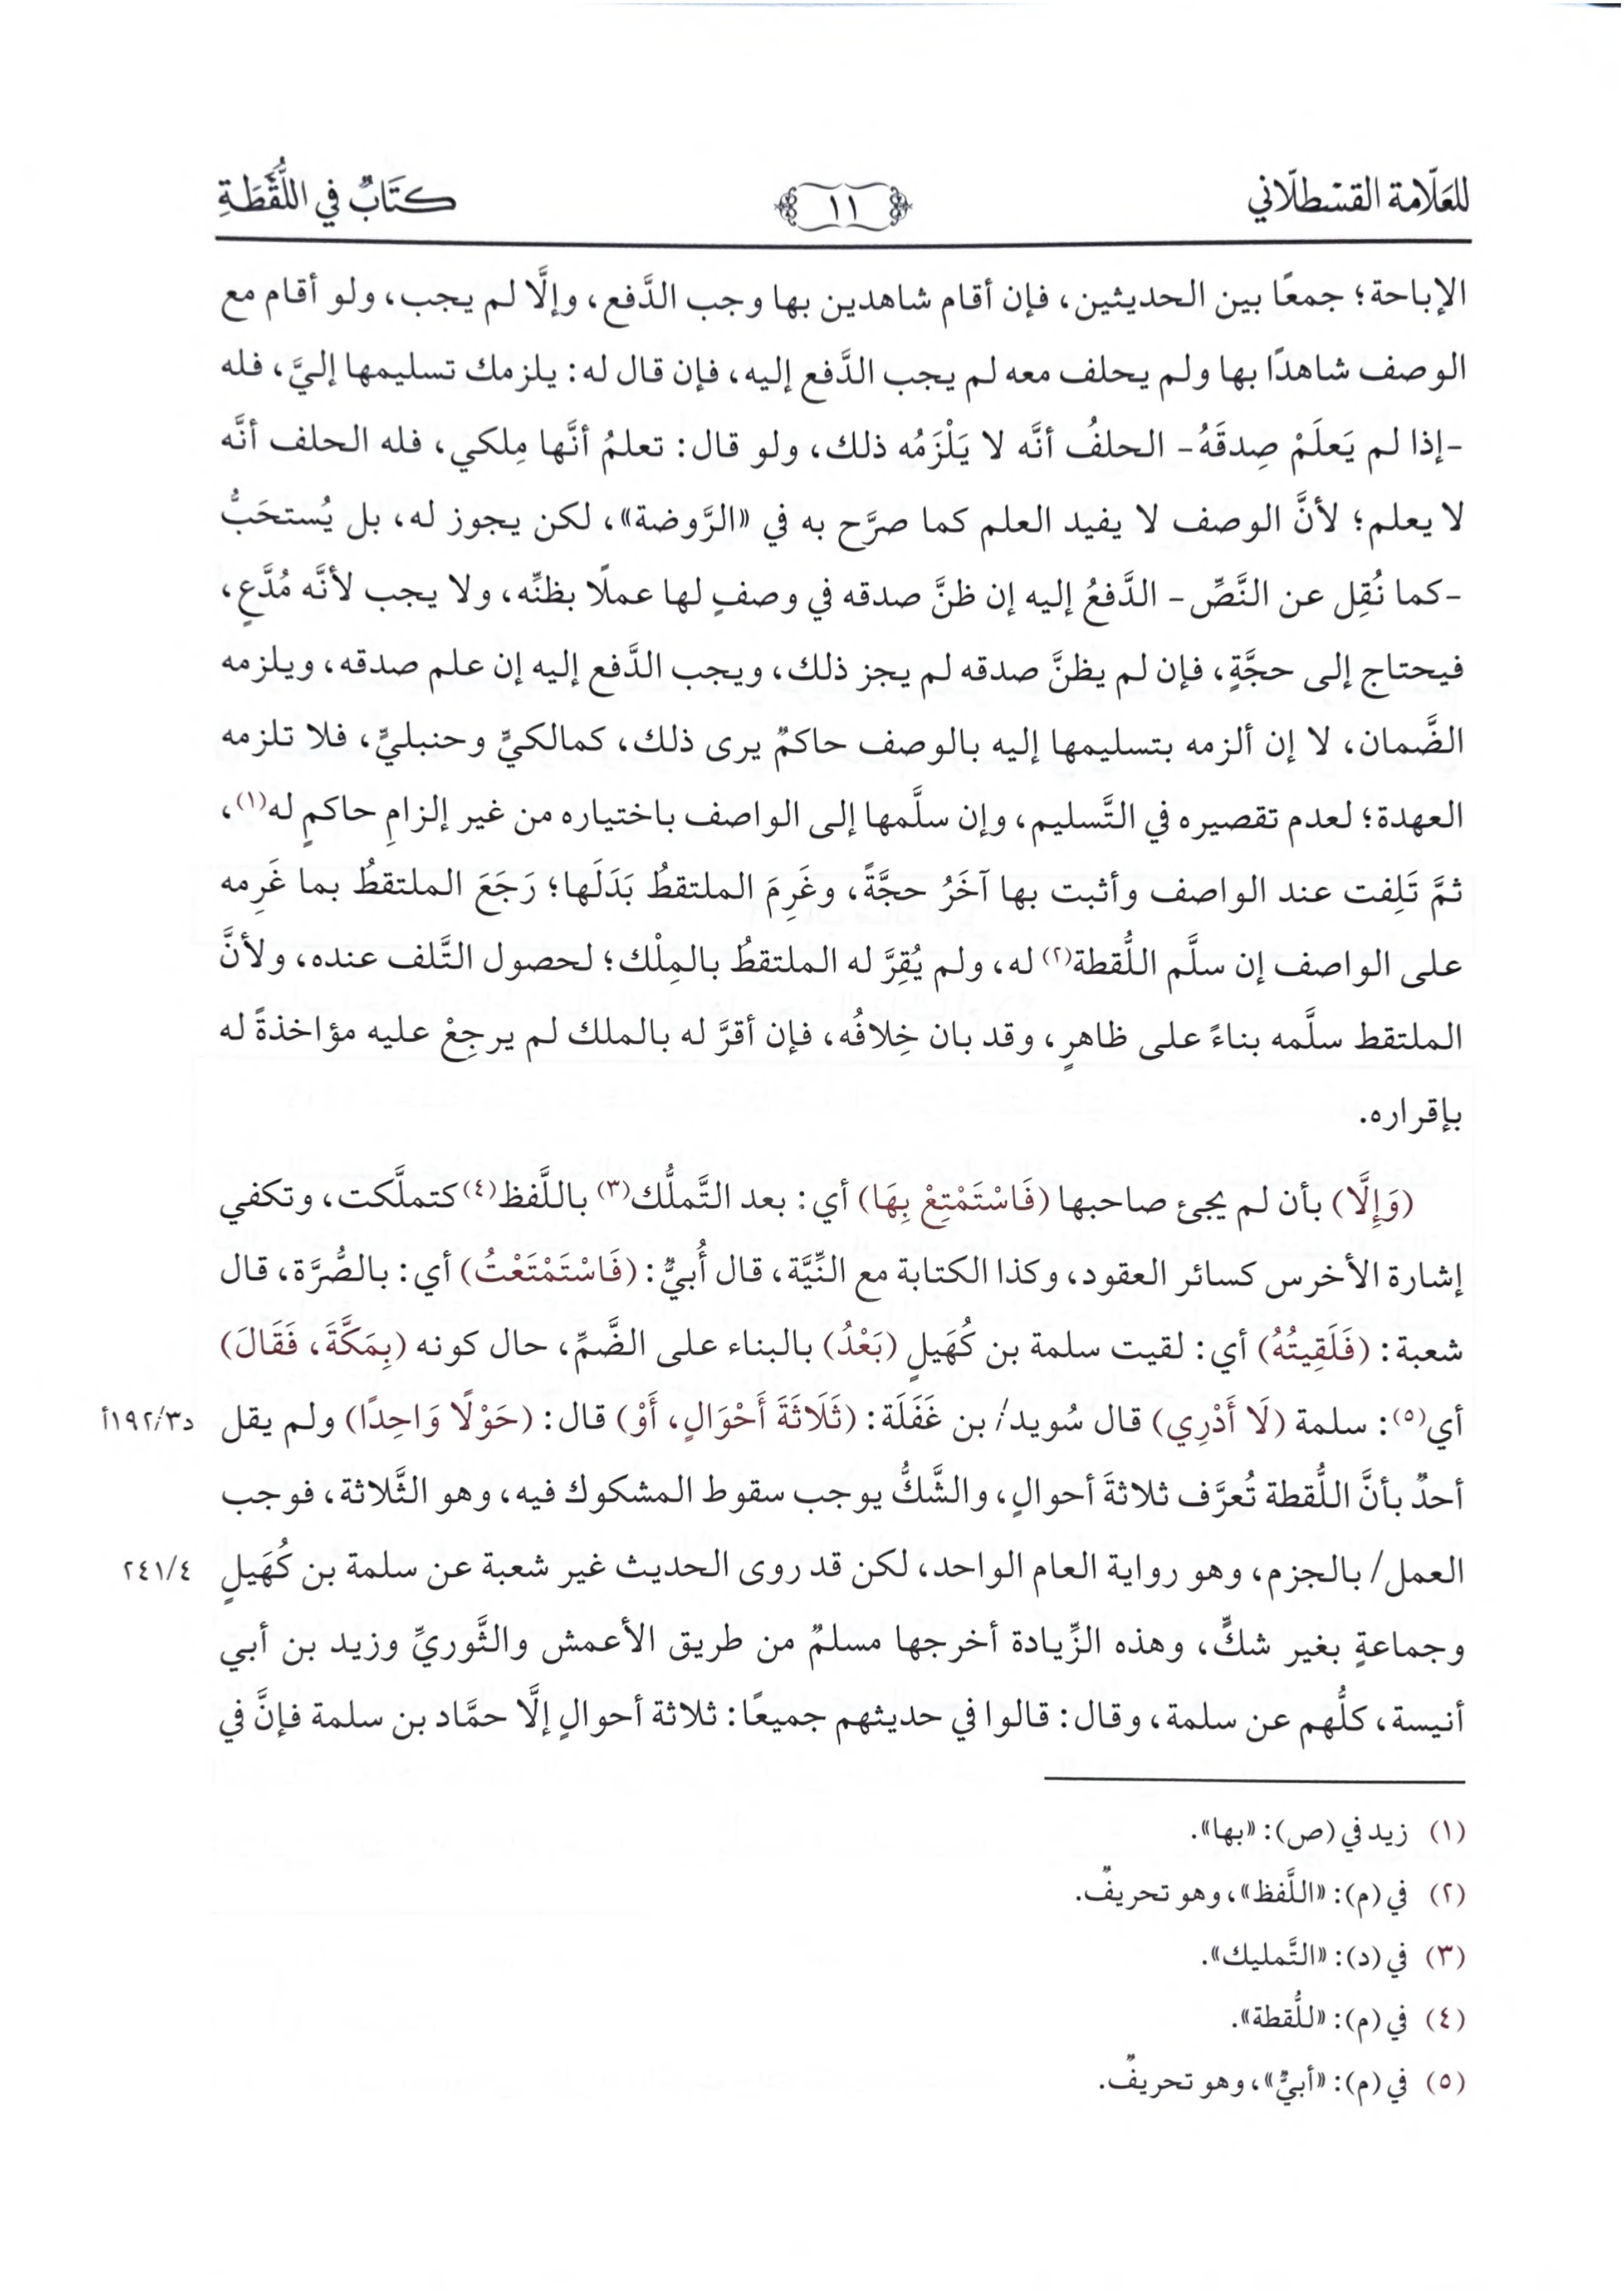 للعَلّامة القسْطلّاني
١١
كتَابٌ في اللُّقَطَةِ
الإباحة؛ جمعًا بين الحديثين، فإن أقام شاهدين بها وجب الدَّفع، وإلَّا لم يجب، ولو أقام مع
الوصف شاهدًا بها ولم يحلف معه لم يجب الدَّفع إليه، فإن قال له: يلزمك تسليمها إليَّ، فله
-إذا لم يَعلَمْ صِدقَهُ- الحلفُ أنَّه لا يَلْزَمُه ذلك، ولو قال: تعلمُ أنَّها مِلكي، فله الحلف أنَّه
لا يعلم؛ لأنَّ الوصف لا يفيد العلم كما صرَّح به في «الرَّوضة»، لكن يجوز له، بل يُستحَبُّ
-كما نُقِل عن النَّصِّ- الدَّفعُ إليه إن ظنَّ صدقه في وصفٍ لها عملًا بظنِّه، ولا يجب لأنَّه مُدَّعٍ،
فيحتاج إلى حجَّةٍ، فإن لم يظنَّ صدقه لم يجز ذلك، ويجب الدَّفع إليه إن علم صدقه، ويلزمه
الضَّمان، لا إن ألزمه بتسليمها إليه بالوصف حاكمٌ يرى ذلك، كمالكيٍّ وحنبليٍّ، فلا تلزمه
العهدة؛ لعدم تقصيره في التَّسليم، وإن سلَّمها إلى الواصف باختياره من غير إلزامِ حاكمٍ له(١)،
ثمَّ تَلِفت عند الواصف وأثبت بها آخَرُ حجَّةً، وغَرِمَ الملتقطُ بَدَلَها؛ رَجَعَ الملتقطُ بما غَرِمه
على الواصف إن سلَّم اللُّقطة(٢) له، ولم يُقِرَّ له الملتقطُ بالمِلْك؛ لحصول التَّلف عنده، ولأنَّ
الملتقط سلَّمه بناءً على ظاهرٍ، وقد بان خِلافُه، فإن أقرَّ له بالملك لم يرجِعْ عليه مؤاخذةً له
بإقراره.
(وَإِلَّا) بأن لم يجئ صاحبها (فَاسْتَمْتِعْ بِهَا) أي: بعد التَّملُّك(٣) باللَّفظ(٤) كتملَّكت، وتكفي
إشارة الأخرس كسائر العقود، وكذا الكتابة مع النِّيَّة، قال أُبيٌّ: (فَاسْتَمْتَعْتُ) أي: بالصُّرَّة، قال
شعبة: (فَلَقِيتُهُ) أي: لقيت سلمة بن كُهَيلٍ (بَعْدُ) بالبناء على الضَّمِّ، حال كونه (بِمَكَّةَ، فَقَالَ)
أي(٥): سلمة (لَا أَدْرِي) قال سُويد/ بن غَفَلَة: (ثَلَاثَةَ أَحْوَالٍ، أَوْ) قال: (حَوْلًا وَاحِدًا) ولم يقل د١٩٢/٣أ
أحدٌ بأنَّ اللُّقطة تُعرَّف ثلاثةَ أحوالٍ، والشَّكُّ يوجب سقوط المشكوك فيه، وهو الثَّلاثة، فوجب
العمل/ بالجزم، وهو رواية العام الواحد، لكن قد روى الحديث غير شعبة عن سلمة بن كُهَيلٍ ٢٤١/٤
وجماعةٍ بغير شكٍّ، وهذه الزِّيادة أخرجها مسلمٌ من طريق الأعمش والثَّوريِّ وزيد بن أبي
أنيسة، كلُّهم عن سلمة، وقال: قالوا في حديثهم جميعًا: ثلاثة أحوالٍ إلَّا حمَّاد بن سلمة فإنَّ في
(١) زيد في (ص): «بها».
(٢) في (م): «اللَّفظ»، وهو تحريفٌ.
(٣) في (د): «التَّمليك».
(٤) في (م): «للُّقطة».
(٥) في (م): «أبيٌّ»، وهو تحريفٌ.